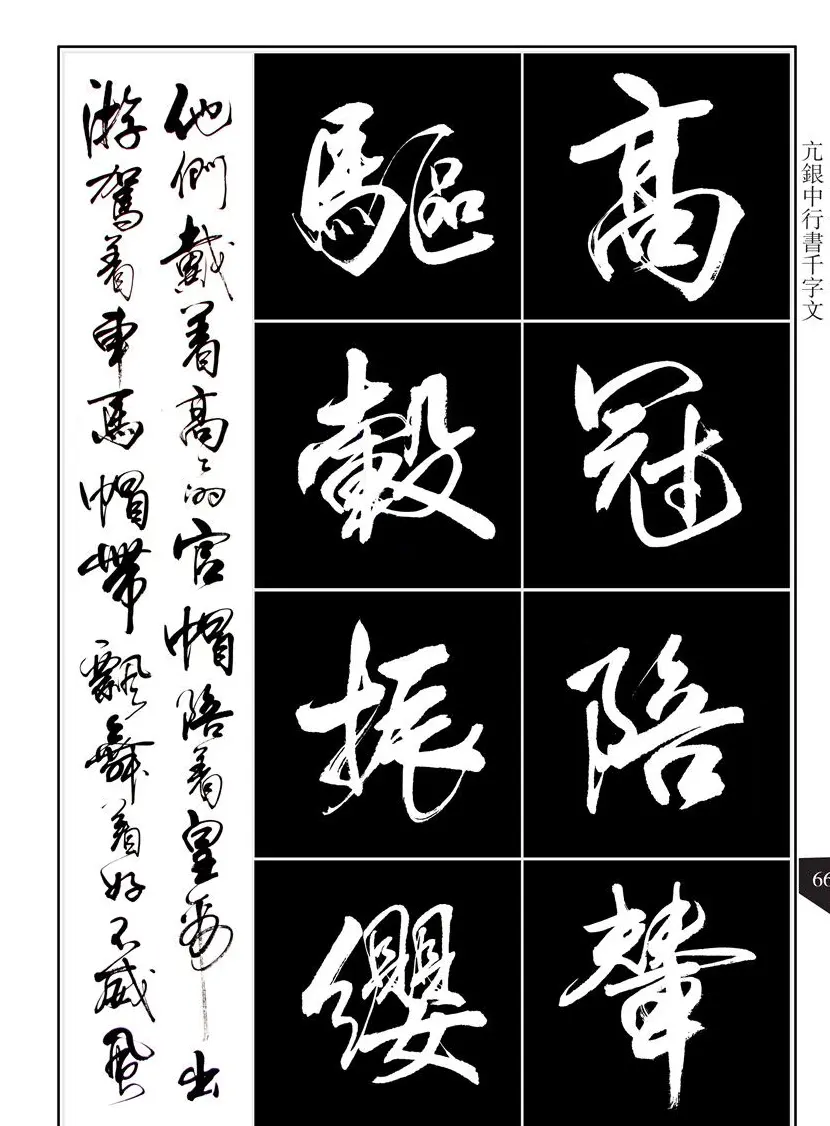 亢銀中行書千字文
高冠陪輦
驅轂振纓
他們戴着高高的官帽陪着皇帝出
游駕着車馬帽帶飄舞着好不威風
66